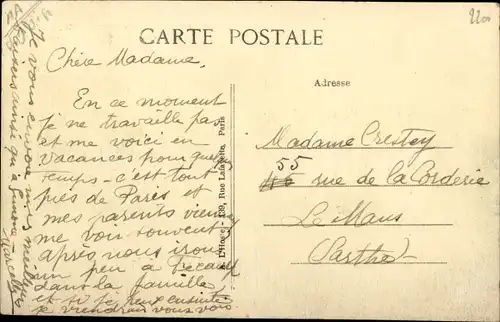 CARTE POSTALE
Chère Madame,
En ce moment
je ne travaille pas
et me voici en
vacances pour quelque
temps - c'est tout
près de Paris et
mes parents viennent
me voir souvent
après nous irons
un peu à Fécamp
dans la famille,
et si je peux ensuite
je viendrai vous voir
Je vous envoie mes meilleurs
baisers ainsi qu'à
Rue Lafayette, Paris
Adresse
Madame Crestey
55
rue de la Corderie
Le Mans
(Sarthe)